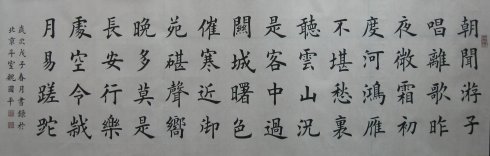 朝聞游子
唱離歌昨
夜微霜初
度河鴻雁
不堪愁裏
聽雲山況
是客中過
關城曙色
催寒近御
苑碪聲嚮
晚多莫是
長安行樂
處空令歲
月易蹉跎
歲次戊子春月書録於
北京斗室祝國平